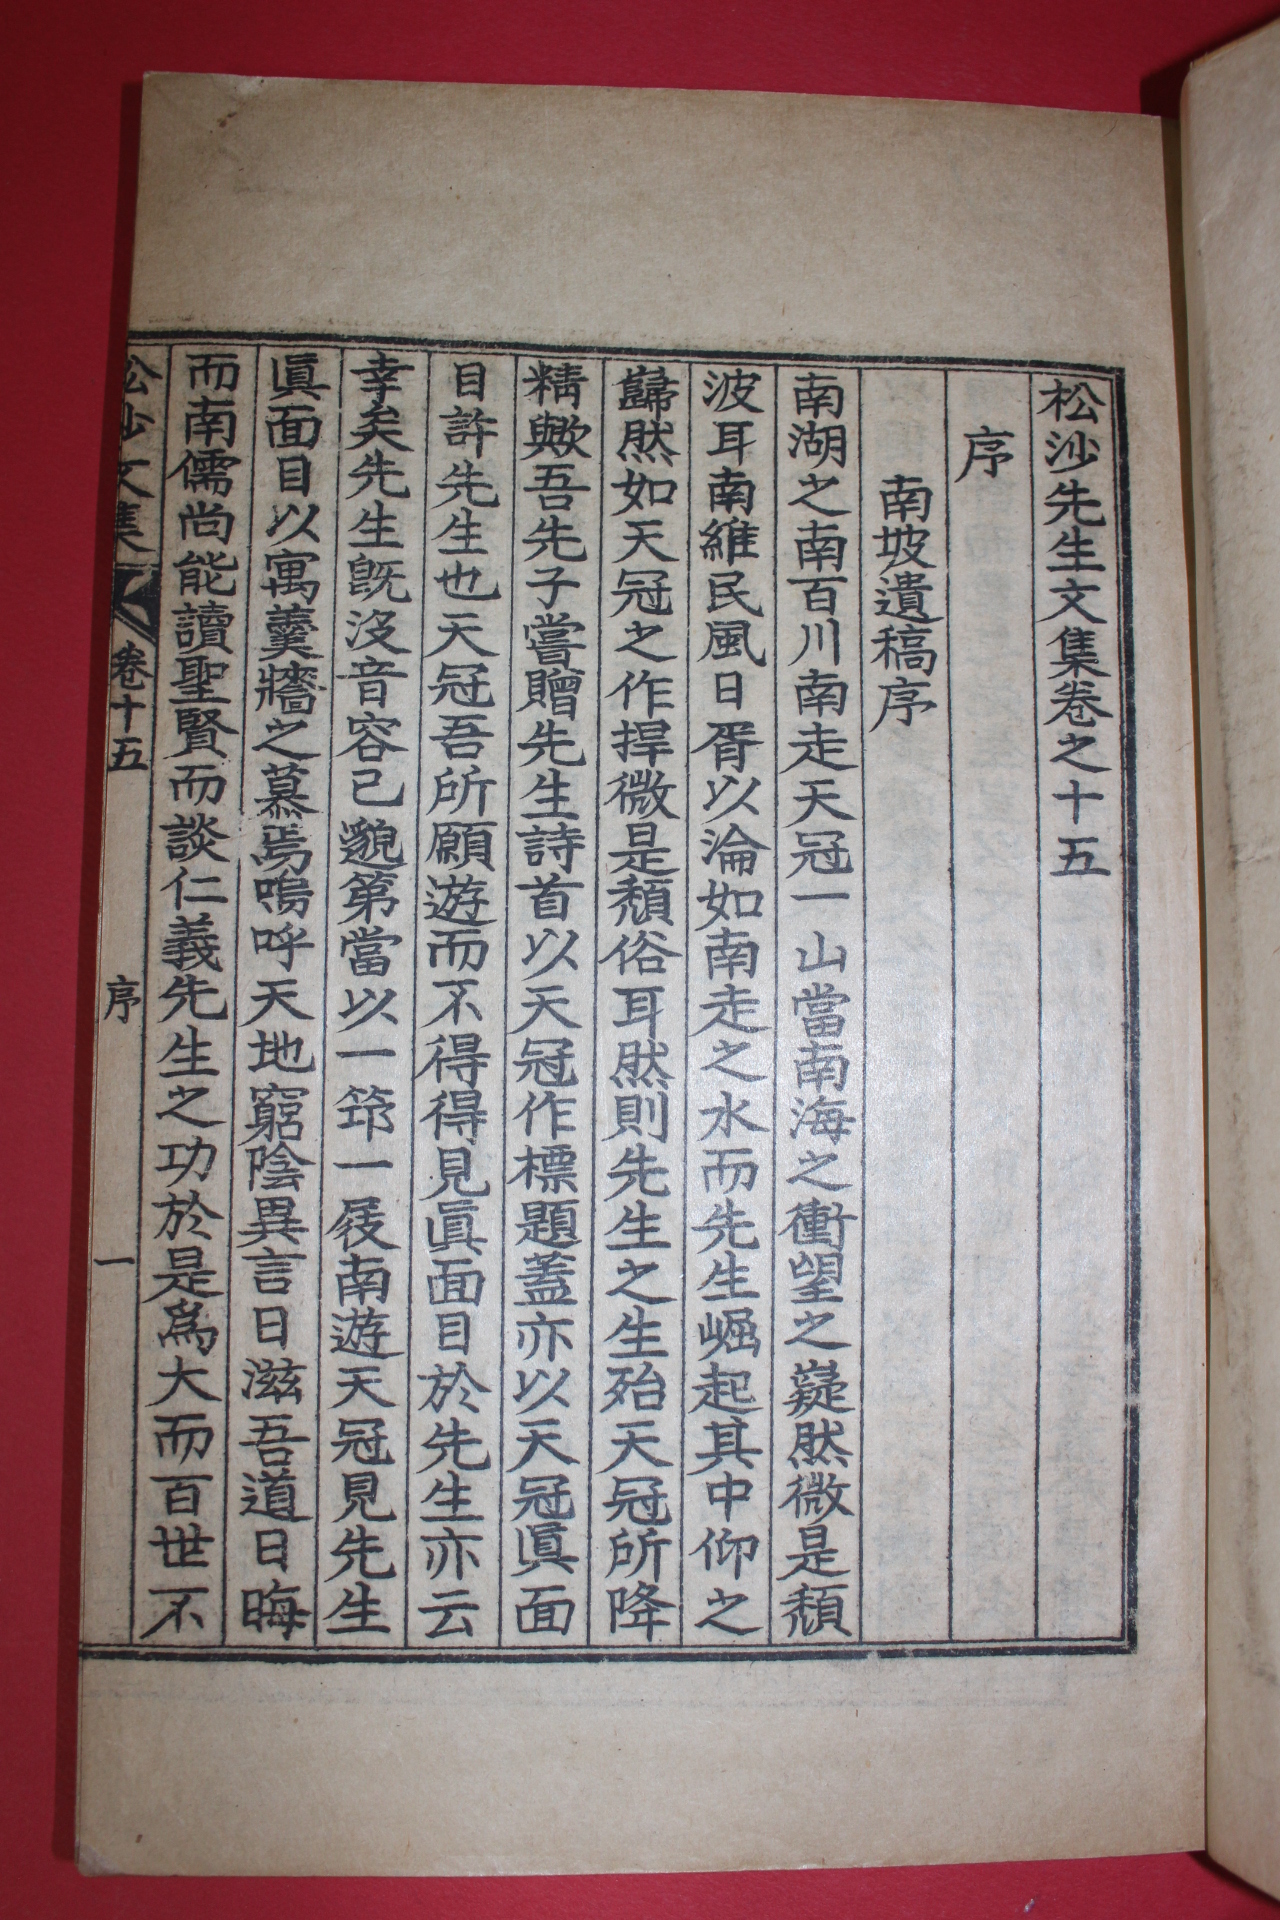 松沙先生文集卷之十五
序
南坡遺稿序
南湖之南百川南走天冠一山當南海之衝望之嶷然微是頹
波耳南維民風日胥以淪如南走之水而先生崛起其中仰之
巋然如天冠之作捍微是頹俗耳然則先生之生殆天冠所降
精歟吾先子嘗贈先生詩首以天冠作標題蓋亦以天冠眞面
目許先生也天冠吾所願遊而不得得見眞面目於先生亦云
幸矣先生旣沒音容已邈第當以一筇一屐南遊天冠見先生
眞面目以寓羹牆之慕焉嗚呼天地窮陰異言日滋吾道日晦
而南儒尚能讀聖賢而談仁義先生之功於是爲大而百世不
松沙文集 卷十五 序 一